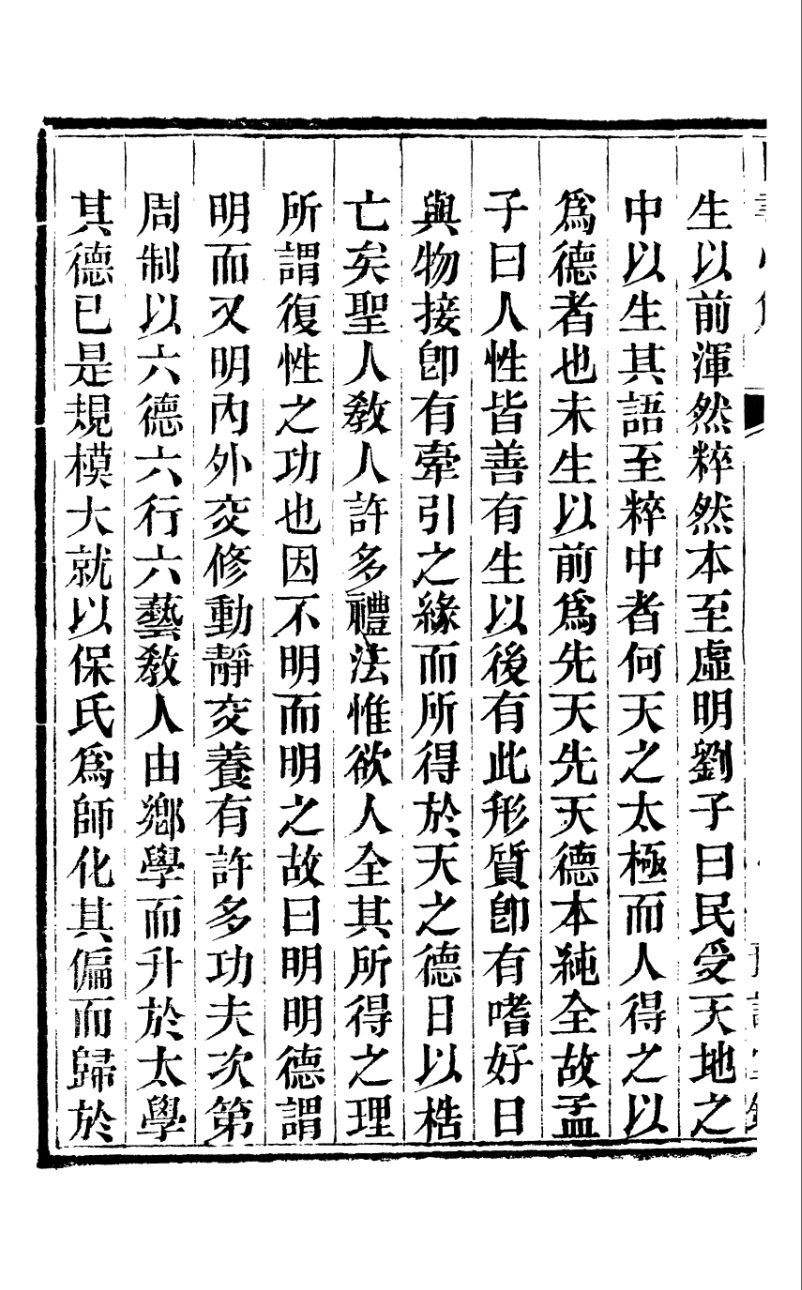 生以前渾然粹然本至虛明劉子曰民受天地之
中以生其語至粹中者何天之太極而人得之以
爲德者也未生以前爲先天先天德本純全故孟
子曰人性皆善有生以後有此形質卽有嗜好日
與物接卽有牽引之緣而所得於天之德日以梏
亡矣聖人敎人許多禮法惟欲人全其所得之理
所謂復性之功也因不明而明之故曰明明德謂
明而又明內外交修動靜交養有許多功夫次第
周制以六德六行六藝敎人由鄕學而升於太學
其德已是規模大就以保氏爲師化其偏而歸於